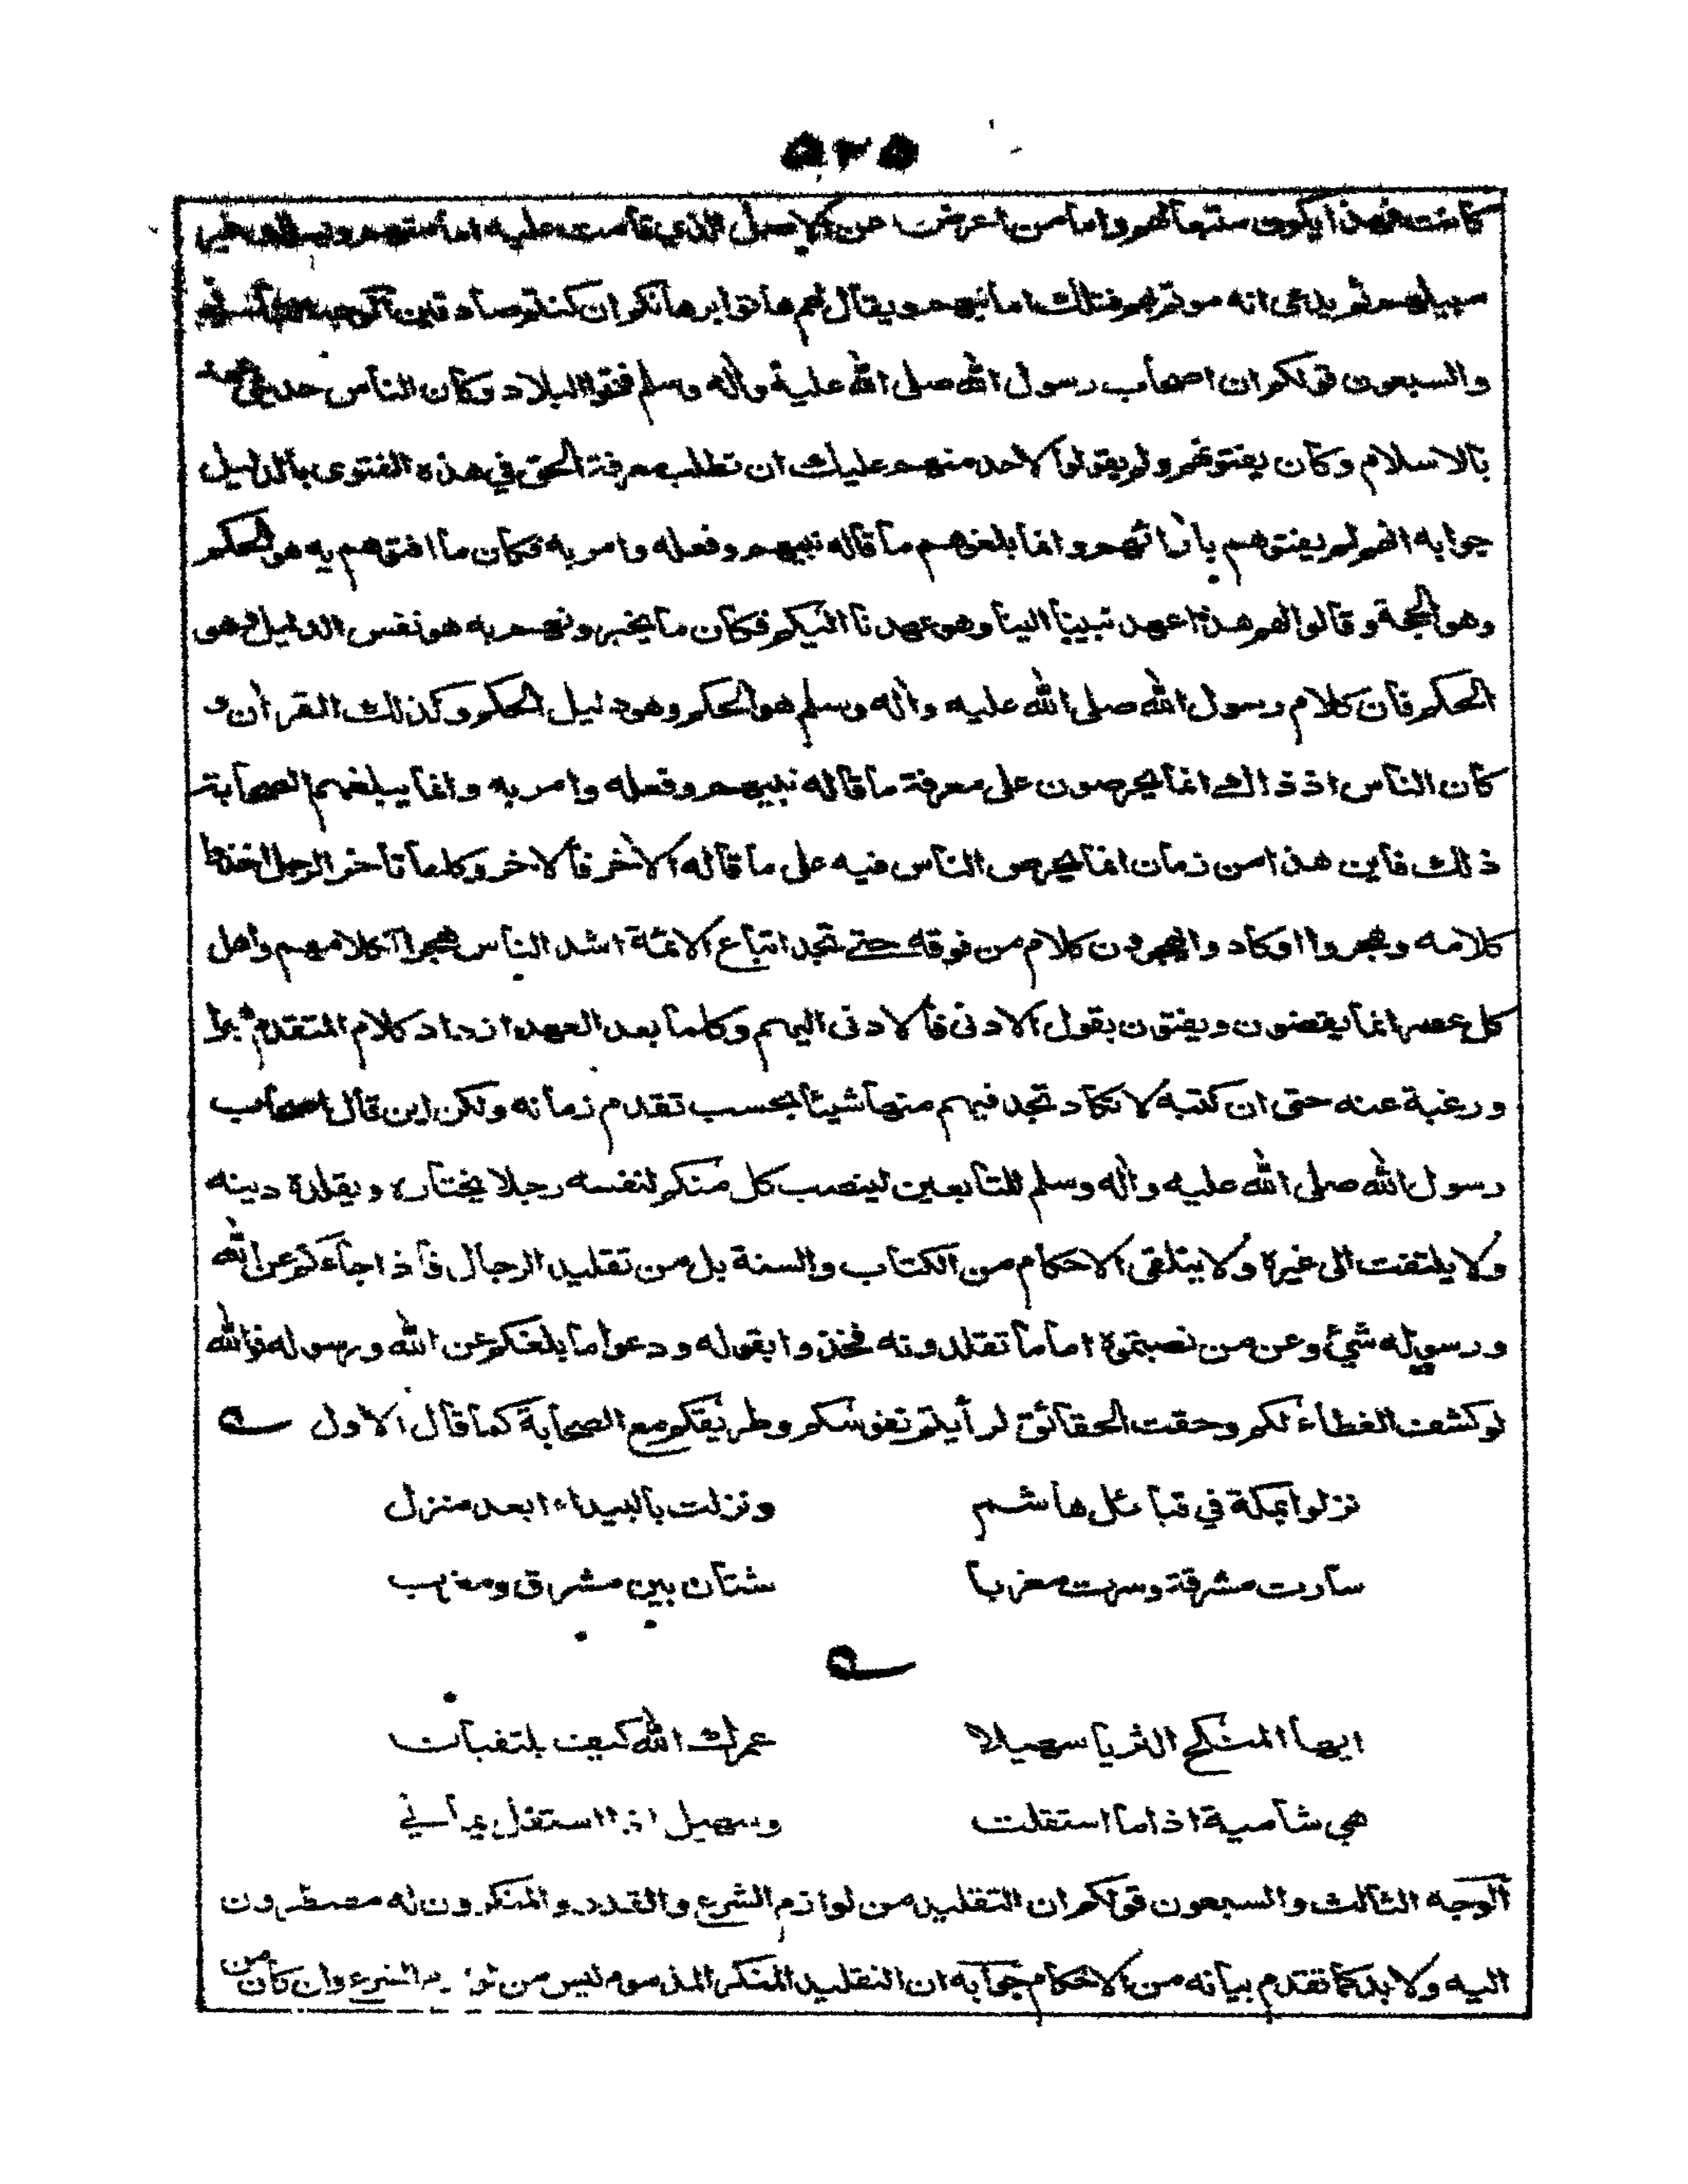 ٥٢٥
كانت فهذا يكون متبعا لهم واما من اعرض عن الاصل الذي قامت عليه امامتهم ويسلك غير
سبيلهم ثم يدعى انه موتم بهم فتلك امانيهم ويقال لهم هاتوا برهانكم ان كنتم صادقين الوجه
والسبعون قولكم ان اصحاب رسول الله صلى الله عليه وآله وسلم فتحوا البلاد وكان الناس حديثى عهد
بالاسلام وكان يفتونهم ولم يقولوا لاحد منهم عليك ان تطلب معرفة الحق في هذه الفتوى بالدليل
جوابه انهم لم يفتوهم بآرائهم وانما بلغوهم ما قاله نبيهم وفعله وامر به فكان ما افتوهم به هو الحكم
وهو الحجة وقالوا لهم هذا عهد نبينا الينا وهو عهدنا اليكم فكان ما يخبرونهم به هو نفس الدليل وهو
الحكم فان كلام رسول الله صلى الله عليه وآله وسلم هو الحكم وهو دليل الحكم وكذلك القرآن و
كان الناس اذ ذاك انما يحرصون على معرفة ما قاله نبيهم وفعله وامر به وانما يبلغهم الصحابة
ذلك فاين هذا من زمان انما يحرص الناس فيه على ما قاله الآخر فالاخر وكلما تأخر الرجل اخذوا
كلامه وهجروا او كاد وا يهجرون كلام من فوقه حتى تجد اتباع الائمة اشد الناس هجرا لكلامهم واهل
كل عصر انما يقضون ويفتون بقول الادنى فالادنى اليهم وكلما بعد العهد ازداد كلام المتقدم هجرا
ورغبة عنه حتى ان كتبه لا تكاد تجد فيهم منها شيئا بحسب تقدم زمانه ولكن اين قال اصحاب
رسول الله صلى الله عليه وآله وسلم للتابعين لينصب كل منكم لنفسه رجلا يختاره ويقلده دينه
ولا يلتفت الى غيره ولا يتلقى الاحكام من الكتاب والسنة بل من تقليد الرجال فاذا جاءكم عن الله
ورسوله شئ وعن من نصبتموه اماما تقلدونه فخذوا بقوله ودعوا ما بلغكم عن الله ورسوله فوالله
لو كشف الغطاء لكم وحقت الحقائق لرأيتم نفوسكم وطريقكم مع الصحابة كما قال الاول
نزلوا بمكة في قبائل هاشم ونزلت بالبيداء ابعد منزل
سارت مشرقة وسرت مغربا شتان بين مشرق ومغرب
ايها المنكح الثريا سهيلا عمرك الله كيف يلتقيان
هي شامية اذا ما استقلت وسهيل اذا استقل يماني
الوجه الثالث والسبعون قولكم ان التقليد من لوازم الشرع والقدر والمنكرون له مضطرون
اليه ولا بد كما تقدم بيانه من الاحكام جوابه ان التقليد المنكر المذموم ليس من لوازم الشرع وان كان من